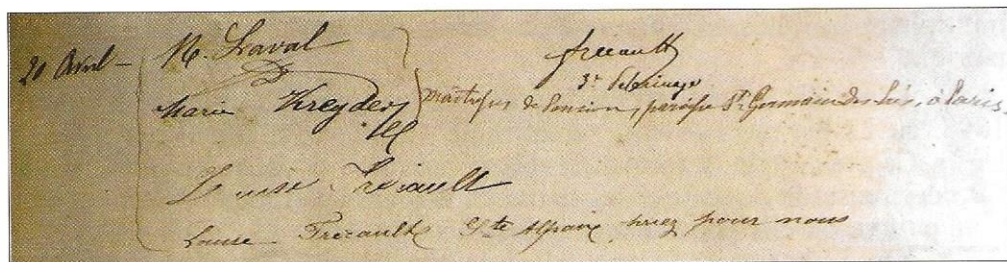 20 Avril –
N. Laval
Marie Kreyder
Frécault
3e Pelérinage
Maitresses de Pension, paroisse St Germain des Prés, à Paris.
Louise Frécault
Louise Frecault Ste Alpaix priez pour nous